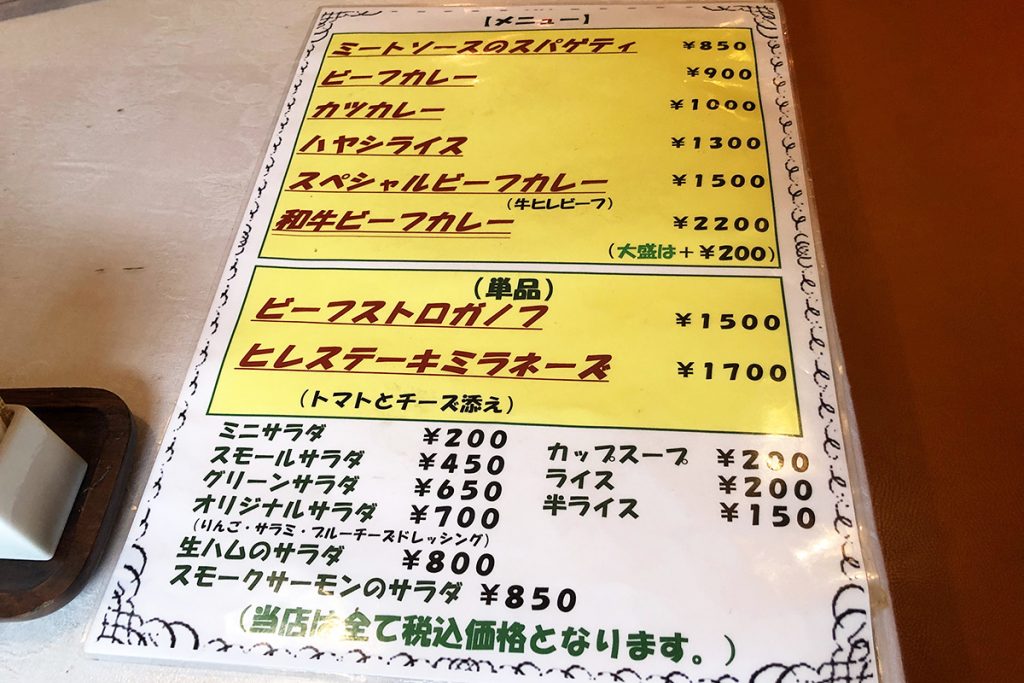 【メニュー】
ミートソースのスパゲティ ¥850
ビーフカレー ¥900
カツカレー ¥1000
ハヤシライス ¥1300
スペシャルビーフカレー ¥1500
(牛ヒレビーフ)
和牛ビーフカレー ¥2200
(大盛は+¥200)
(単品)
ビーフストロガノフ ¥1500
ヒレステーキミラネーズ ¥1700
(トマトとチーズ添え)
ミニサラダ ¥200
スモールサラダ ¥450
グリーンサラダ ¥650
オリジナルサラダ ¥700
(りんご・サラミ・ブルーチーズドレッシング)
生ハムのサラダ ¥800
スモークサーモンのサラダ ¥850
カップスープ ¥200
ライス ¥200
半ライス ¥150
(当店は全て税込価格となります。)